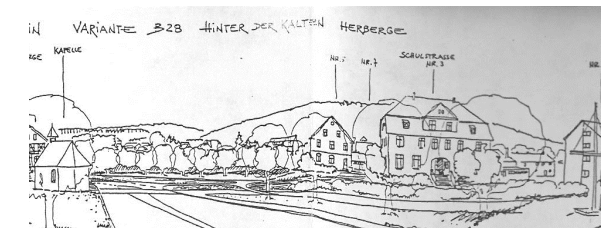 iN VARIANTE B28 HINTER DER KALTEN HERBERGE
KAPELLE
NR. 5 NR. 7 SCHULSTRASSE
NR. 3